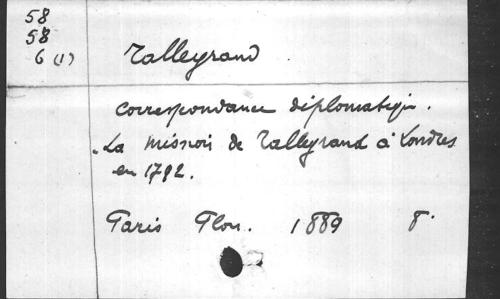 58
58
6 (1)
Talleyrand.
Correspondance diplomatiq.
La mission de Talleyrand à Londres
en 1792.
Paris Plon. 1889 8°